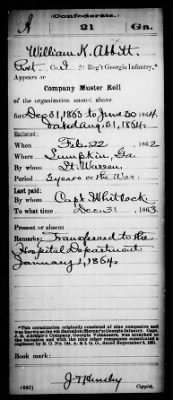 Confederate.
A 21 Ga.
William K. Abbitt
Co. 21 Reg't Georgia Infantry.*
Appears on
Company Muster Roll
of the organization named above
for Dec 31, 1863 to June 30, 1864.
dated Aug 31, 1864
Enlisted:
When Feb. 22, 1862
Where Lumpkin, Ga.
By whom Lt. Warren
Period 3 years or the War.
Last paid:
By whom Capt. Whitlock
To what time Dec 31, 1863.
Present or absent
Remarks: Transferred to the
Hospital Department
January 1, 1864
*This organization originally consisted of nine companies and
was known as the 4th Battalion Georgia Infantry. Capt.
J. B. Company, Georgia Volunteers, was attached to
the battalion and with the nine other companies constituted
regiment by S. O. No. 141, A. & I. G. O., dated September 1861.
Book mark:
J T
(642) Copyist.